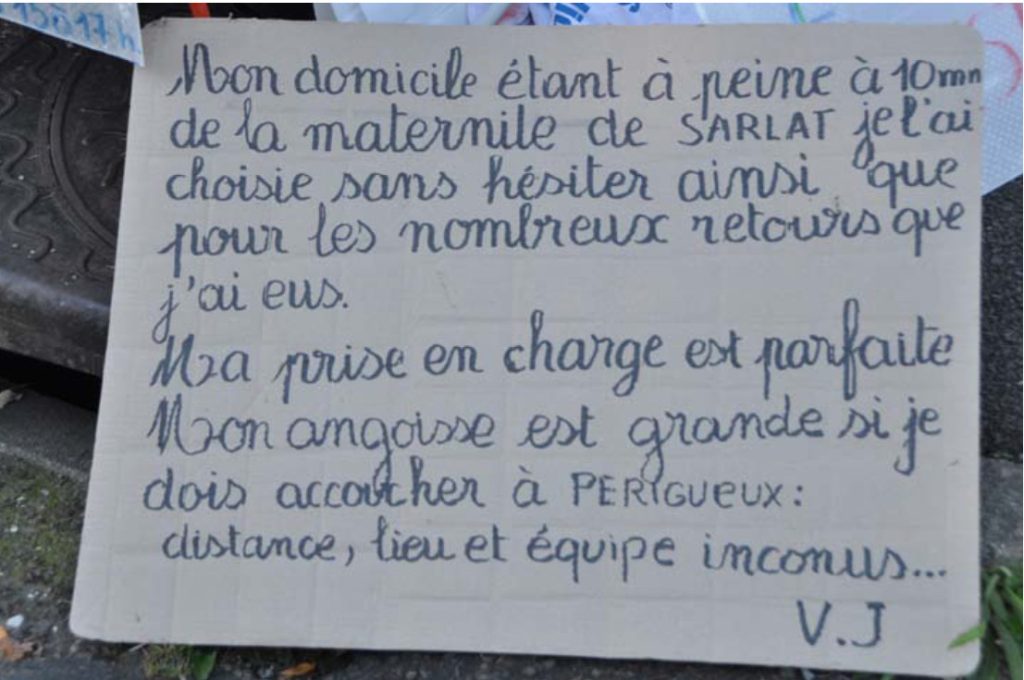 15à17h
Mon domicile étant à peine à 10mn
de la maternile de SARLAT je l'ai
choisie sans hésiter ainsi que
pour les nombreux retours que
j'ai eus.
Ma prise en charge est parfaite
Mon angoisse est grande si je
dois accoucher à PERIGUEUX:
distance, lieu et équipe inconus...
V.J